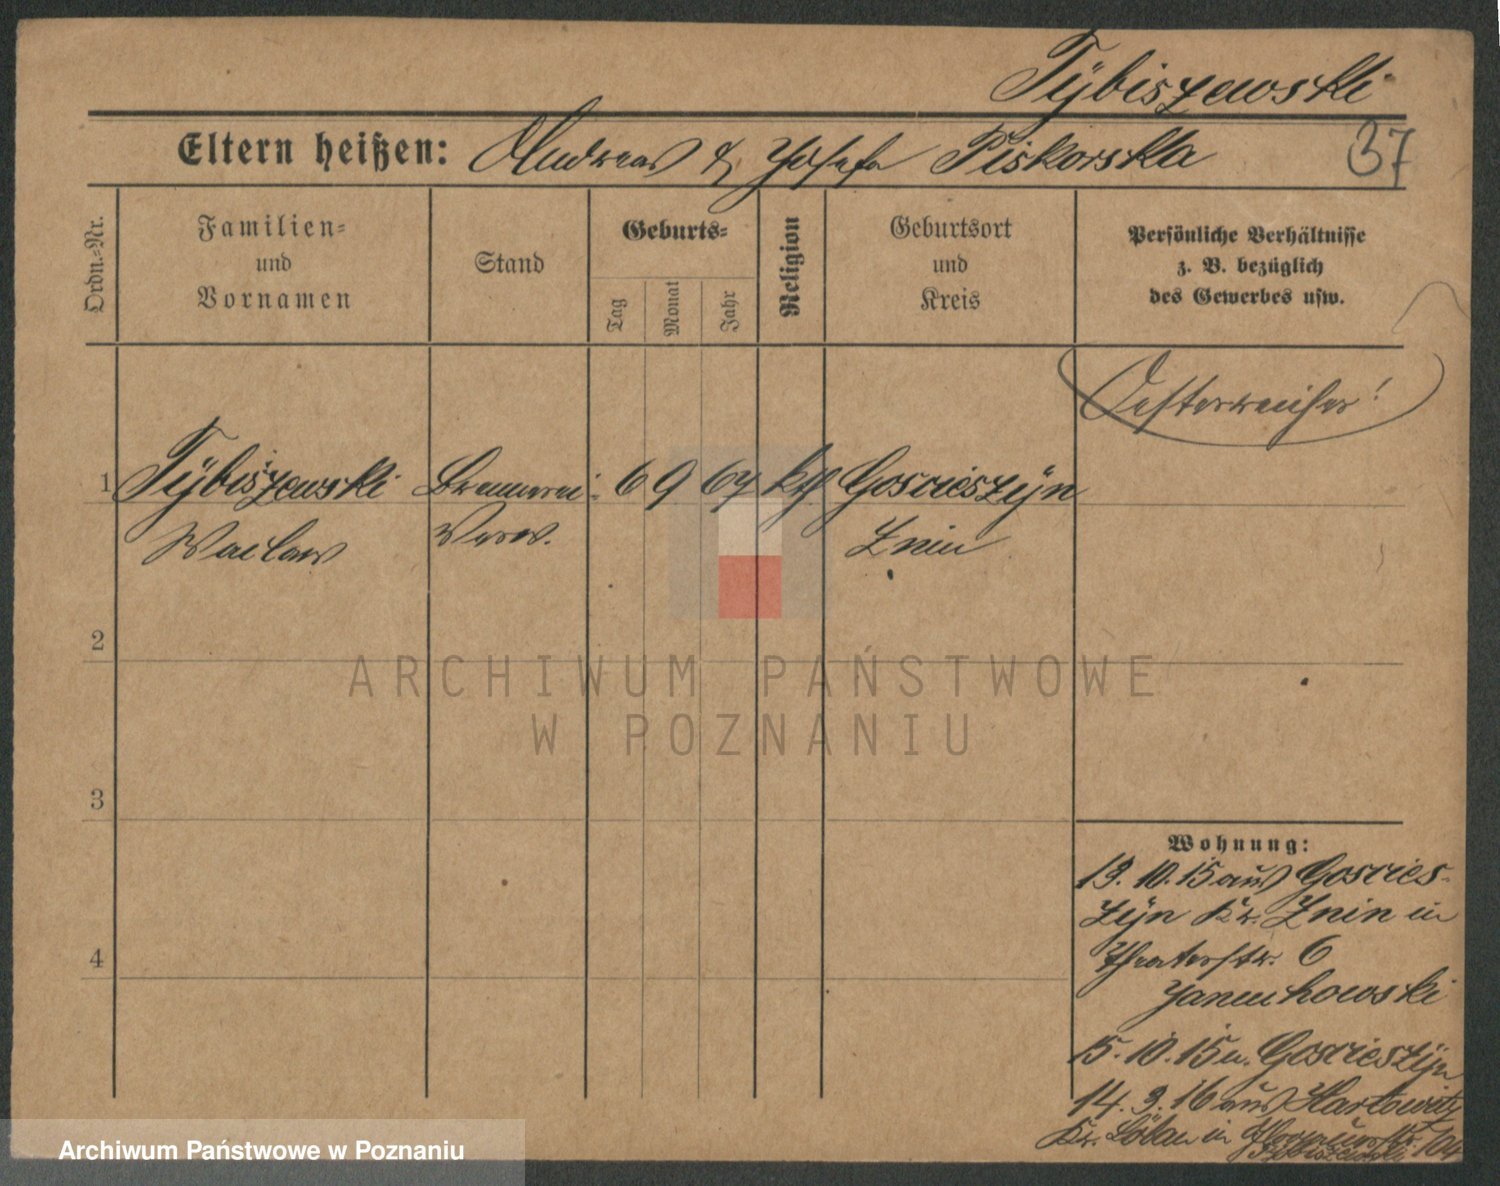 Tÿbiszewski
Eltern heißen: Andreas & Josefa Piskorska
37
Ordn.-Nr.
Familien-
und
Vornamen
Stand
Geburts-
Tag
Monat
Jahr
Religion
Geburtsort
und
Kreis
Persönliche Verhältnisse
z. B. bezüglich
des Gewerbes usw.
Oesterreicher!
1 Tÿbiszewski Brennerei- 6 9 67 kth Goscieszÿn
Waclaw Verw. Znin
2
ARCHIWUM PAŃSTWOWE
W POZNANIU
3
4
Wohnung:
13. 10. 15 aus Goscies-
zÿn Kr. Znin in
Theaterstr. 6
Janukowski
15. 10. 15 n. Goscieszÿn
14. 3. 16 aus Hartowitz
Kr. Löbau in 104
Tybiszewski
Archiwum Państwowe w Poznaniu